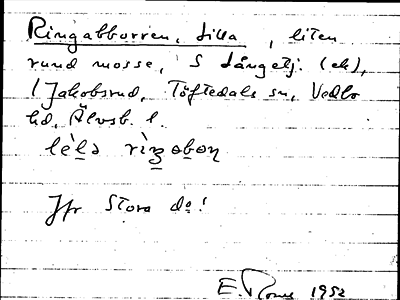 Ringabborren, Lilla, liten
rund mosse, S Långetj. (ek),
i Jakobsrud, Töftedals sn, Vedbo
hd, Älvsb. l.
lèlə rìŋabɔṇ
Jfr Stora do!
E. 1952